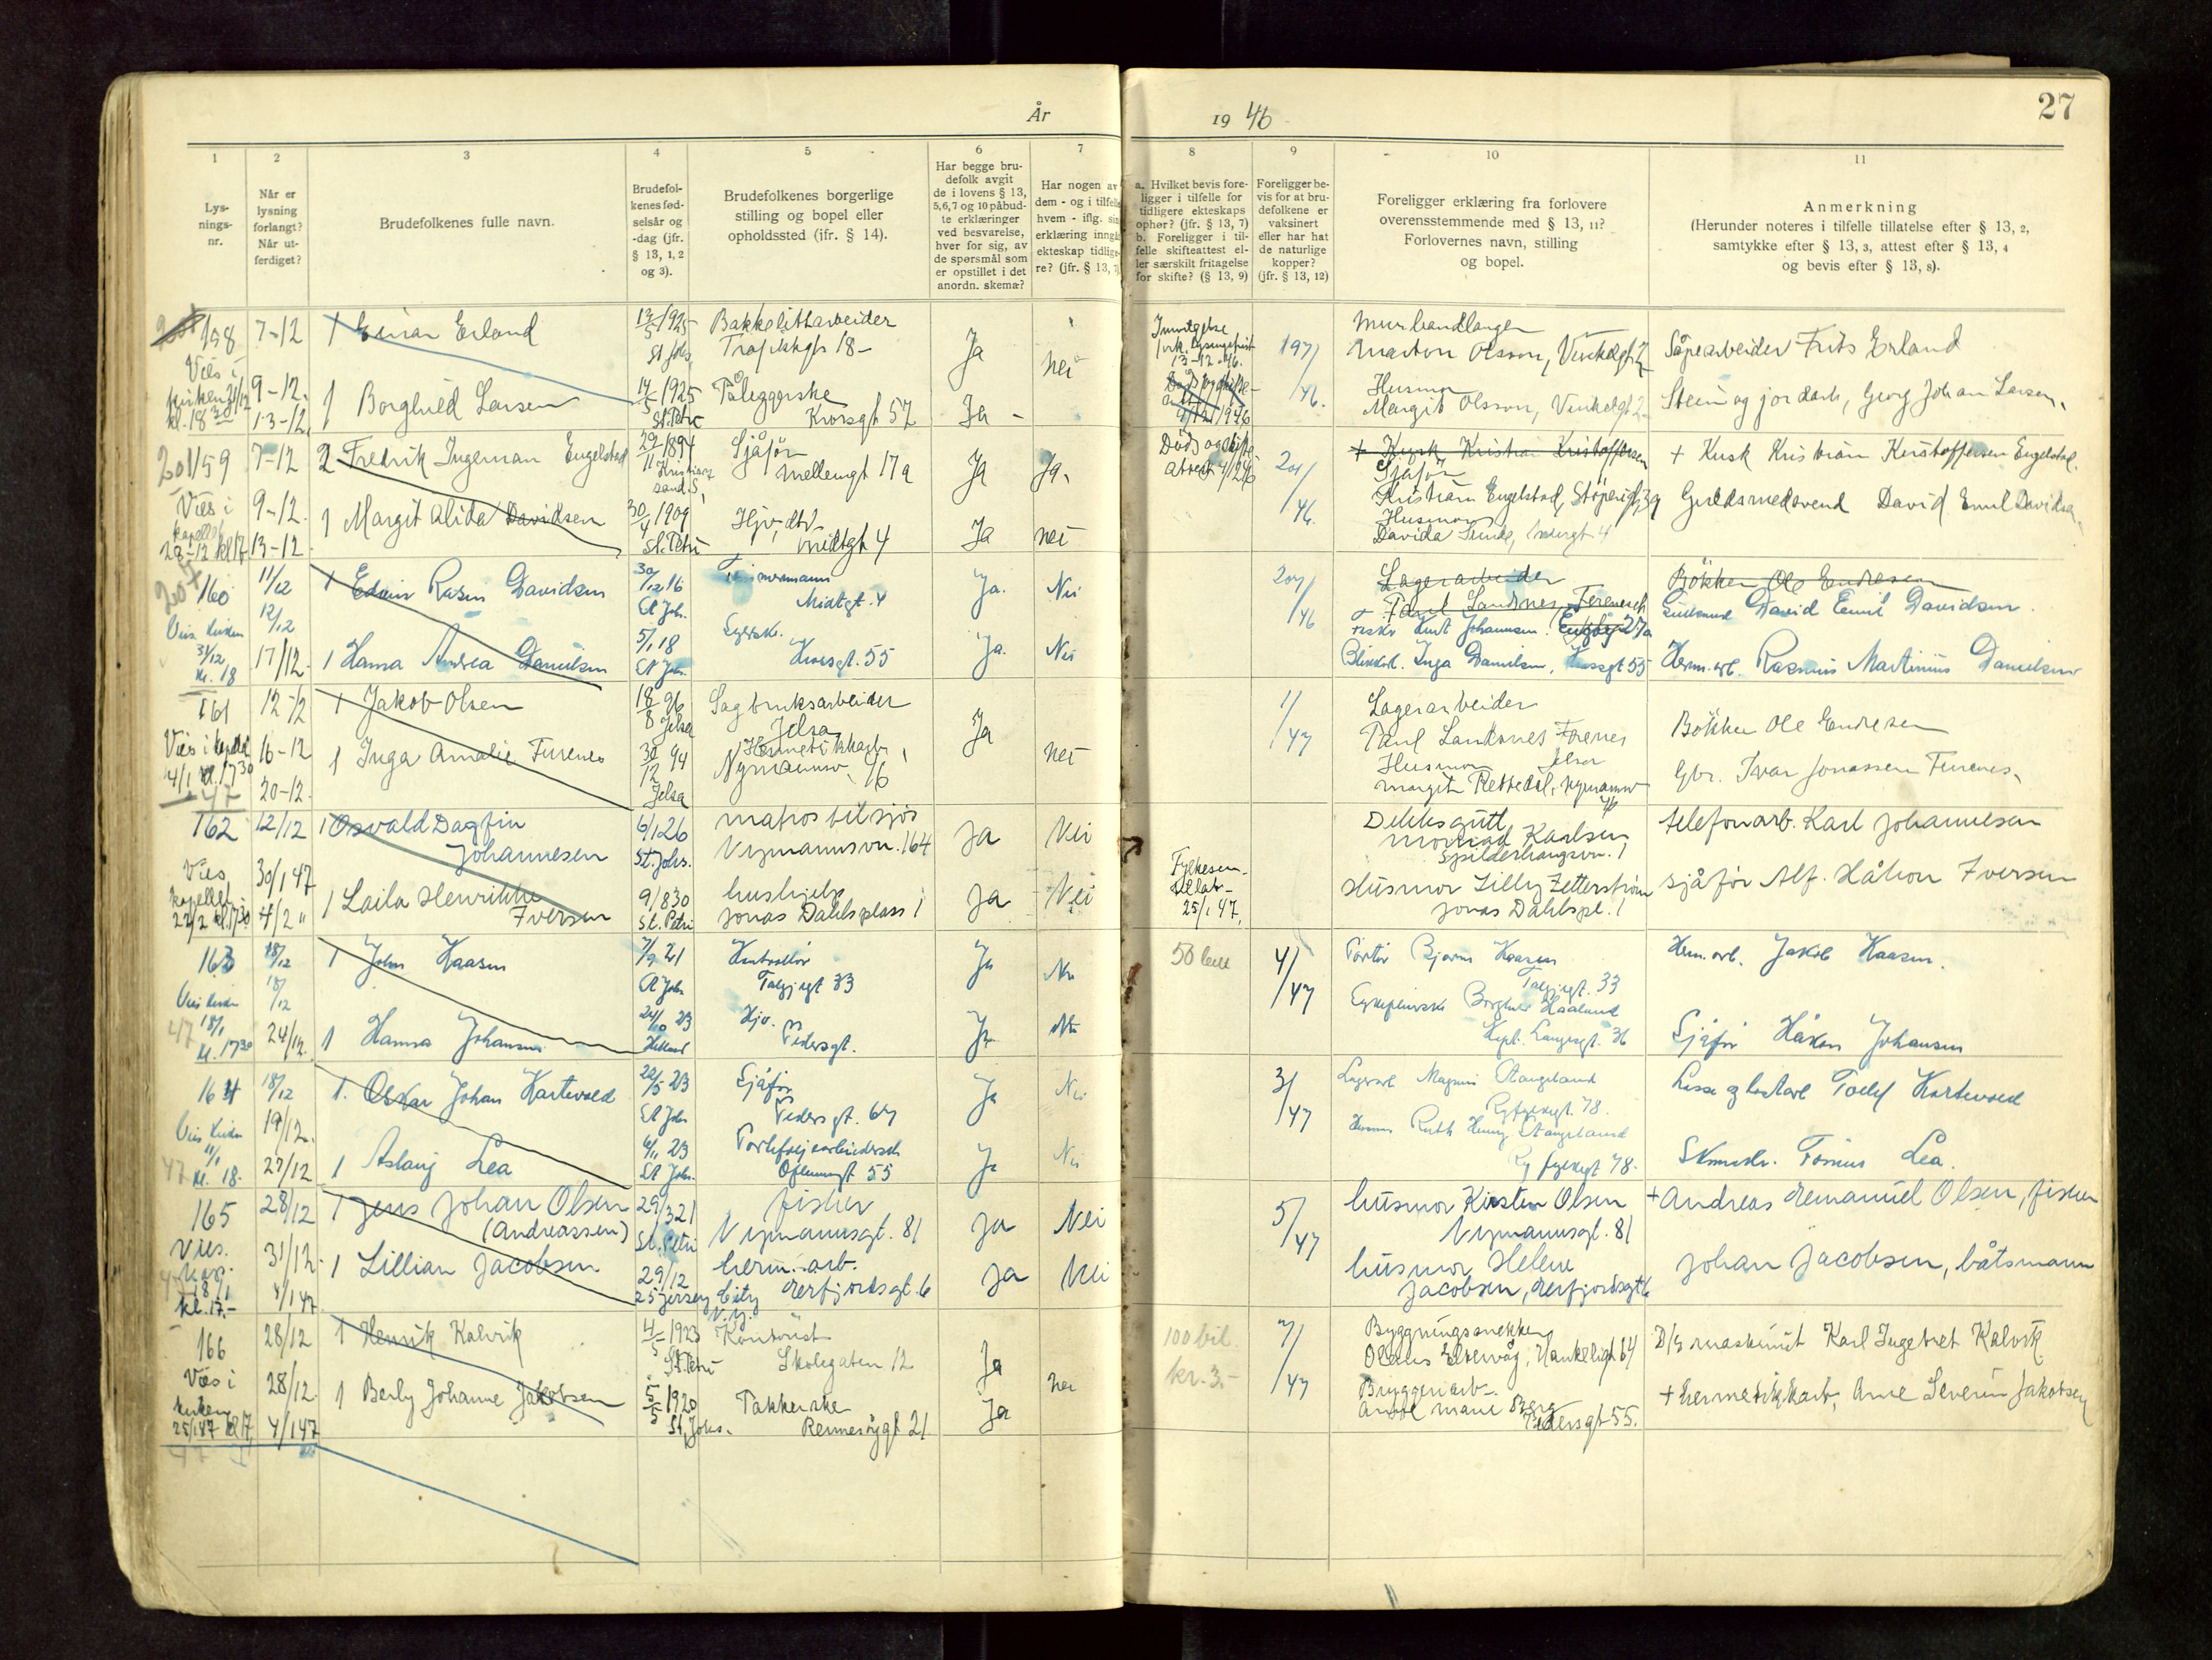 År
19 46
27
1
2
3
4
5
6
7
8
9
10
11
Lys-
nings-
nr.
Når er
lysning
forlangt?
Når ut-
ferdiget?
Brudefolkenes fulle navn.
Brudefol-
kenes fød-
selsår og
-dag (jfr.
§ 13, 1, 2
og 3).
Brudefolkenes borgerlige
stilling og bopel eller
opholdssted (jfr. § 14).
Har begge bru-
defolk avgit
de i lovens § 13,
5, 6, 7 og 10 påbud-
te erklæringer
ved besvarelse,
hver for sig, av
de spørsmål som
er opstillet i det
anordn. skema?
Har nogen av
dem - og i tilfelle
hvem - iflg. sin
erklæring inngå
ekteskap tidlige-
re? (jfr. § 13, 7)
a. Hvilket bevis fore-
ligger i tilfelle for
tidligere ekteskaps
ophør? (jfr. § 13, 7)
b. Foreligger i til-
felle skifteattest el-
ler særskilt fritagelse
for skifte? (§ 13, 9)
Foreligger be-
vis for at bru-
defolkene er
vaksinert
eller har hat
de naturlige
kopper?
(jfr. § 13, 12)
Foreligger erklæring fra forlovere
overensstemmende med § 13, 11?
Forlovernes navn, stilling
og bopel.
Anmerkning
(Herunder noteres i tilfelle tillatelse efter § 13, 2,
samtykke efter § 13, 3, attest efter § 13, 4
og bevis efter § 13, 8).
158
7-12
1 Einar Erland
13/5 1925
St Johs
Bakkelittarbeider
Trafikkgt 18-
Ja
nei
13-12-46
197/46.
Murhandlanger
Marton Olsson, Vinkelgt 2
Såpearbeider Frits Erland
Vies i
kirken 21/12
kl. 18 30
9-12.
13-12.
1 Borghild Larsen
14/5 1925
St. Petri
Påleggerske
Korsgt 57
Ja -
Husmor
Margit Olsson, Vinkelgt 2-
Stein og jordarb, Georg Johan Larsen.
201 159
7-12
2 Fredrik Ingeman Engelstad
29/11 1894
Kristian-
sand S.
Sjåfør
Mellemgt 17a
Ja
Ja.
Døds og skifte
attest 4/12 46
201/46.
+ Kusk Kristian Kristoffersen
Sjåfør
Kristian Engelstad, Støperigt 39
+ Kusk Kristian Kristoffersen Engelstad.
Vies i
kapellet
28-12 kl 17
9-12.
13-12.
1 Margit Alida Davidsen
30/4 1909
St. Petri
Hjv. dtr.
Midtgt 4
Ja
nei
Husmor
Davida Lunde, Midtgt 4
Guldsmedsvend David Emil Davidsen
207 160
11/12
12/12
17/12.
1 Edvin Rasm Davidsen
30/12 16
St Joh.
Tømmermann
Midtgt. 4
Ja.
Nei
207/46
Lagerarbeider
Paul Landsnes, Ferenes
Fisker Knut Johannsen. Engbgt 27a
Bøkker Ole Endresen
Gullsmed David Emil Davidsen.
Vies kirken
31/12
kl. 18
1 Hanna Andrea Danielsen
5/1 18
St Joh.
Syerske.
Korsgt. 55
Ja.
Nei
Blikkarb. Inga Danielsen, Korsgt 55
Herm. arb. Rasmus Martinius Danielsen
161
12-12
1 Jakob Olsen
18/8 96
Jelsa
Sagbruksarbeider
Jelsa
Ja
nei
1/47
Lagerarbeider
Paul Landsnes Furenes
Jelsa
Bøkker Ole Endresen
Vies i kapellet
4/1 kl. 17 30
47
16-12
20-12.
1 Inga Amalie Furenes
30/12 94
Jelsa
Hermetikkarb.
Nymannsv. 46
Husmor
Margit Rettedal, Nymannsv
46
Gbr. Ivar Jonassen Furenes.
162
12/12
1 Osvald Dagfin
Johannesen
6/1 26
St. Johs.
matros til sjøs
Nymannsvn. 164
ja
Nei
Dekksgutt
Karlsen
Spilderhaugsvn. 1
telefonarb. Karl Johannesen
Vies
kapellet
22/2 kl. 17 30
30/1 47
4/2 "
1 Laila Henrikke
Iversen
9/8 30
St. Petri
hushjelp
Jonas Dahls plass 1
ja
Nei
Fylkesm.
tillat-
25/1 47.
Husmor Lilly Zetterstrøm
Jonas Dahls pl. 1
sjåfør Alf. Håkon Iversen
163
18/12
18/12
1 John Haasen
7/9 21
St Joh
Kontrollør
Talgjegt 33
Ja
Nei
50 bill
4/47
Portør Bjarne Haasen
Talgjegt. 33
Herm. arb. Jakob Haasen.
Vies kirken
18/1
kl. 17 30
47
24/12.
1 Hanna Johansen
24/10 23
Hetland
Hjv.
Pedersgt.
Ja
Nei
Sykepleierske Borghild Haaland
Kapt. Langesgt. 36
Sjåfør Håkon Johansen
164
18/12
19/12.
1. Oskar Johan Hartvoed
22/5 23
St Joh
Sjåfør
Pedersgt. 67
Ja
Nei
3/47
Lagerarb Magnus Stangeland
Ryfylkegt. 78.
Losse og lastearb Todlf Hartvoed
Vies kirken
11/1
kl. 18.
47
27/12
1 Aslaug Lea
6/11 23
St Joh.
Porteføljearbeiderske
Oflumsgt 55
Ja
Nei
Husmor Ruth Henny Stangeland
Ryfylkegt 78.
Skomaker. Tønnes Lea.
165
28/12
1 Jens Johan Olsen
(Andreassen)
29/3 21
St. Petri
fisker
Nymannsgt. 81
ja
Nei
5/47
husmor Kirsten Olsen
Nymannsgt. 81
+ Andreas Emanuel Olsen, fisker
Vies.
kap.
18/1
kl. 17.-
31/12.
4/1 47
1 Lillian Jacobsen
29/12
25 Jersey City
N.J.
herm.-arb.
Erfjordsgt. 6
ja
Nei
husmor Helene
Jacobsen, Erfjordsgt 6
Johan Jacobsen, båtsmann
166
28/12
1 Henrik Kalvik
4/5 1923
St. Petri
Kontorist
Skolegaten 12
Ja
nei
100 bil.
kr. 3.-
7/47
Byggningssnekker
Oleus Elvevåg, Haukeligt 64
D/S maskinist Karl Ingebret Kalvik
Vies i
kirken
25/1 47 kl 17
28/12.
4/1 47
1 Berly Johanne Jakobsen
5/5 1920
St. Johs.
Pakkerske
Rennesøygt 21
Ja
Bryggeriarb.
Anne Marie Berg
Pedersgt 55.
+ Hermetikkarb, Arne Severin Jakobsen